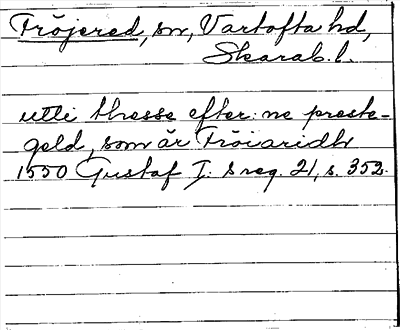 Fröjered, sn, Vartofta hd,
Skarab. l.
utti thesse efter:ne preste-
geld, som är Fröiaridh
1550 Gustaf I:s reg. 21, s. 352.